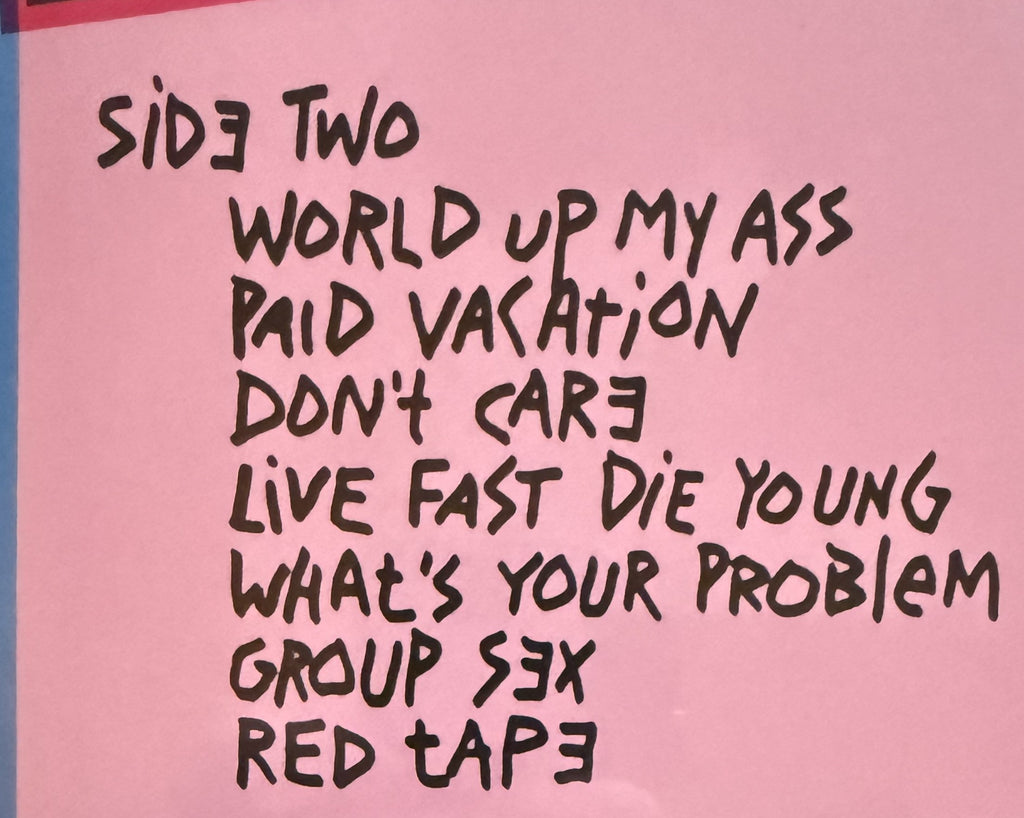 SiDE TWO
WORLD UP MY ASS
PAID VACAtiON
DON't CARE
LiVE FAST DiE YOUNG
WHAt'S YOUR PROBleM
GROUP SEX
RED tAPE